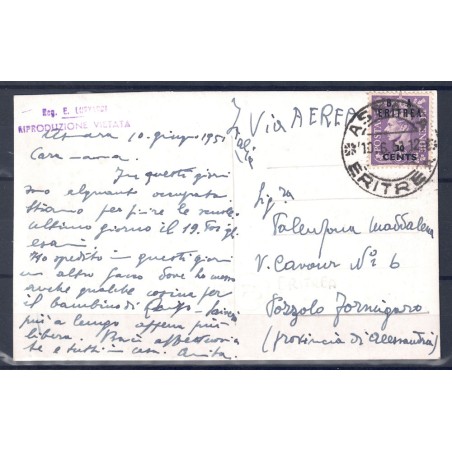 Rag. E.
RIPRODUZIONE VIETATA
Asmara 10. giugno 1951
Cara mamma.
In questi giorni
sono alquanto occupata
stiamo per finire le scuole
ultimo giorno il 19. Poi gli
esami.
Ho spedito in questi giorni
un altro pacco dove ho messo
anche qualche cosina per
il bambino di
più a lungo appena più
libera. Baci affettuosi a
te e tutti in casa. Anita.
Italia
Via AEREA
B. A.
ERITREA
30
CENTS
ERITREA
Sig.ra
Maddalena
V. Cavour No 6
Pozzolo Formigaro
(provincia di Alessandria)